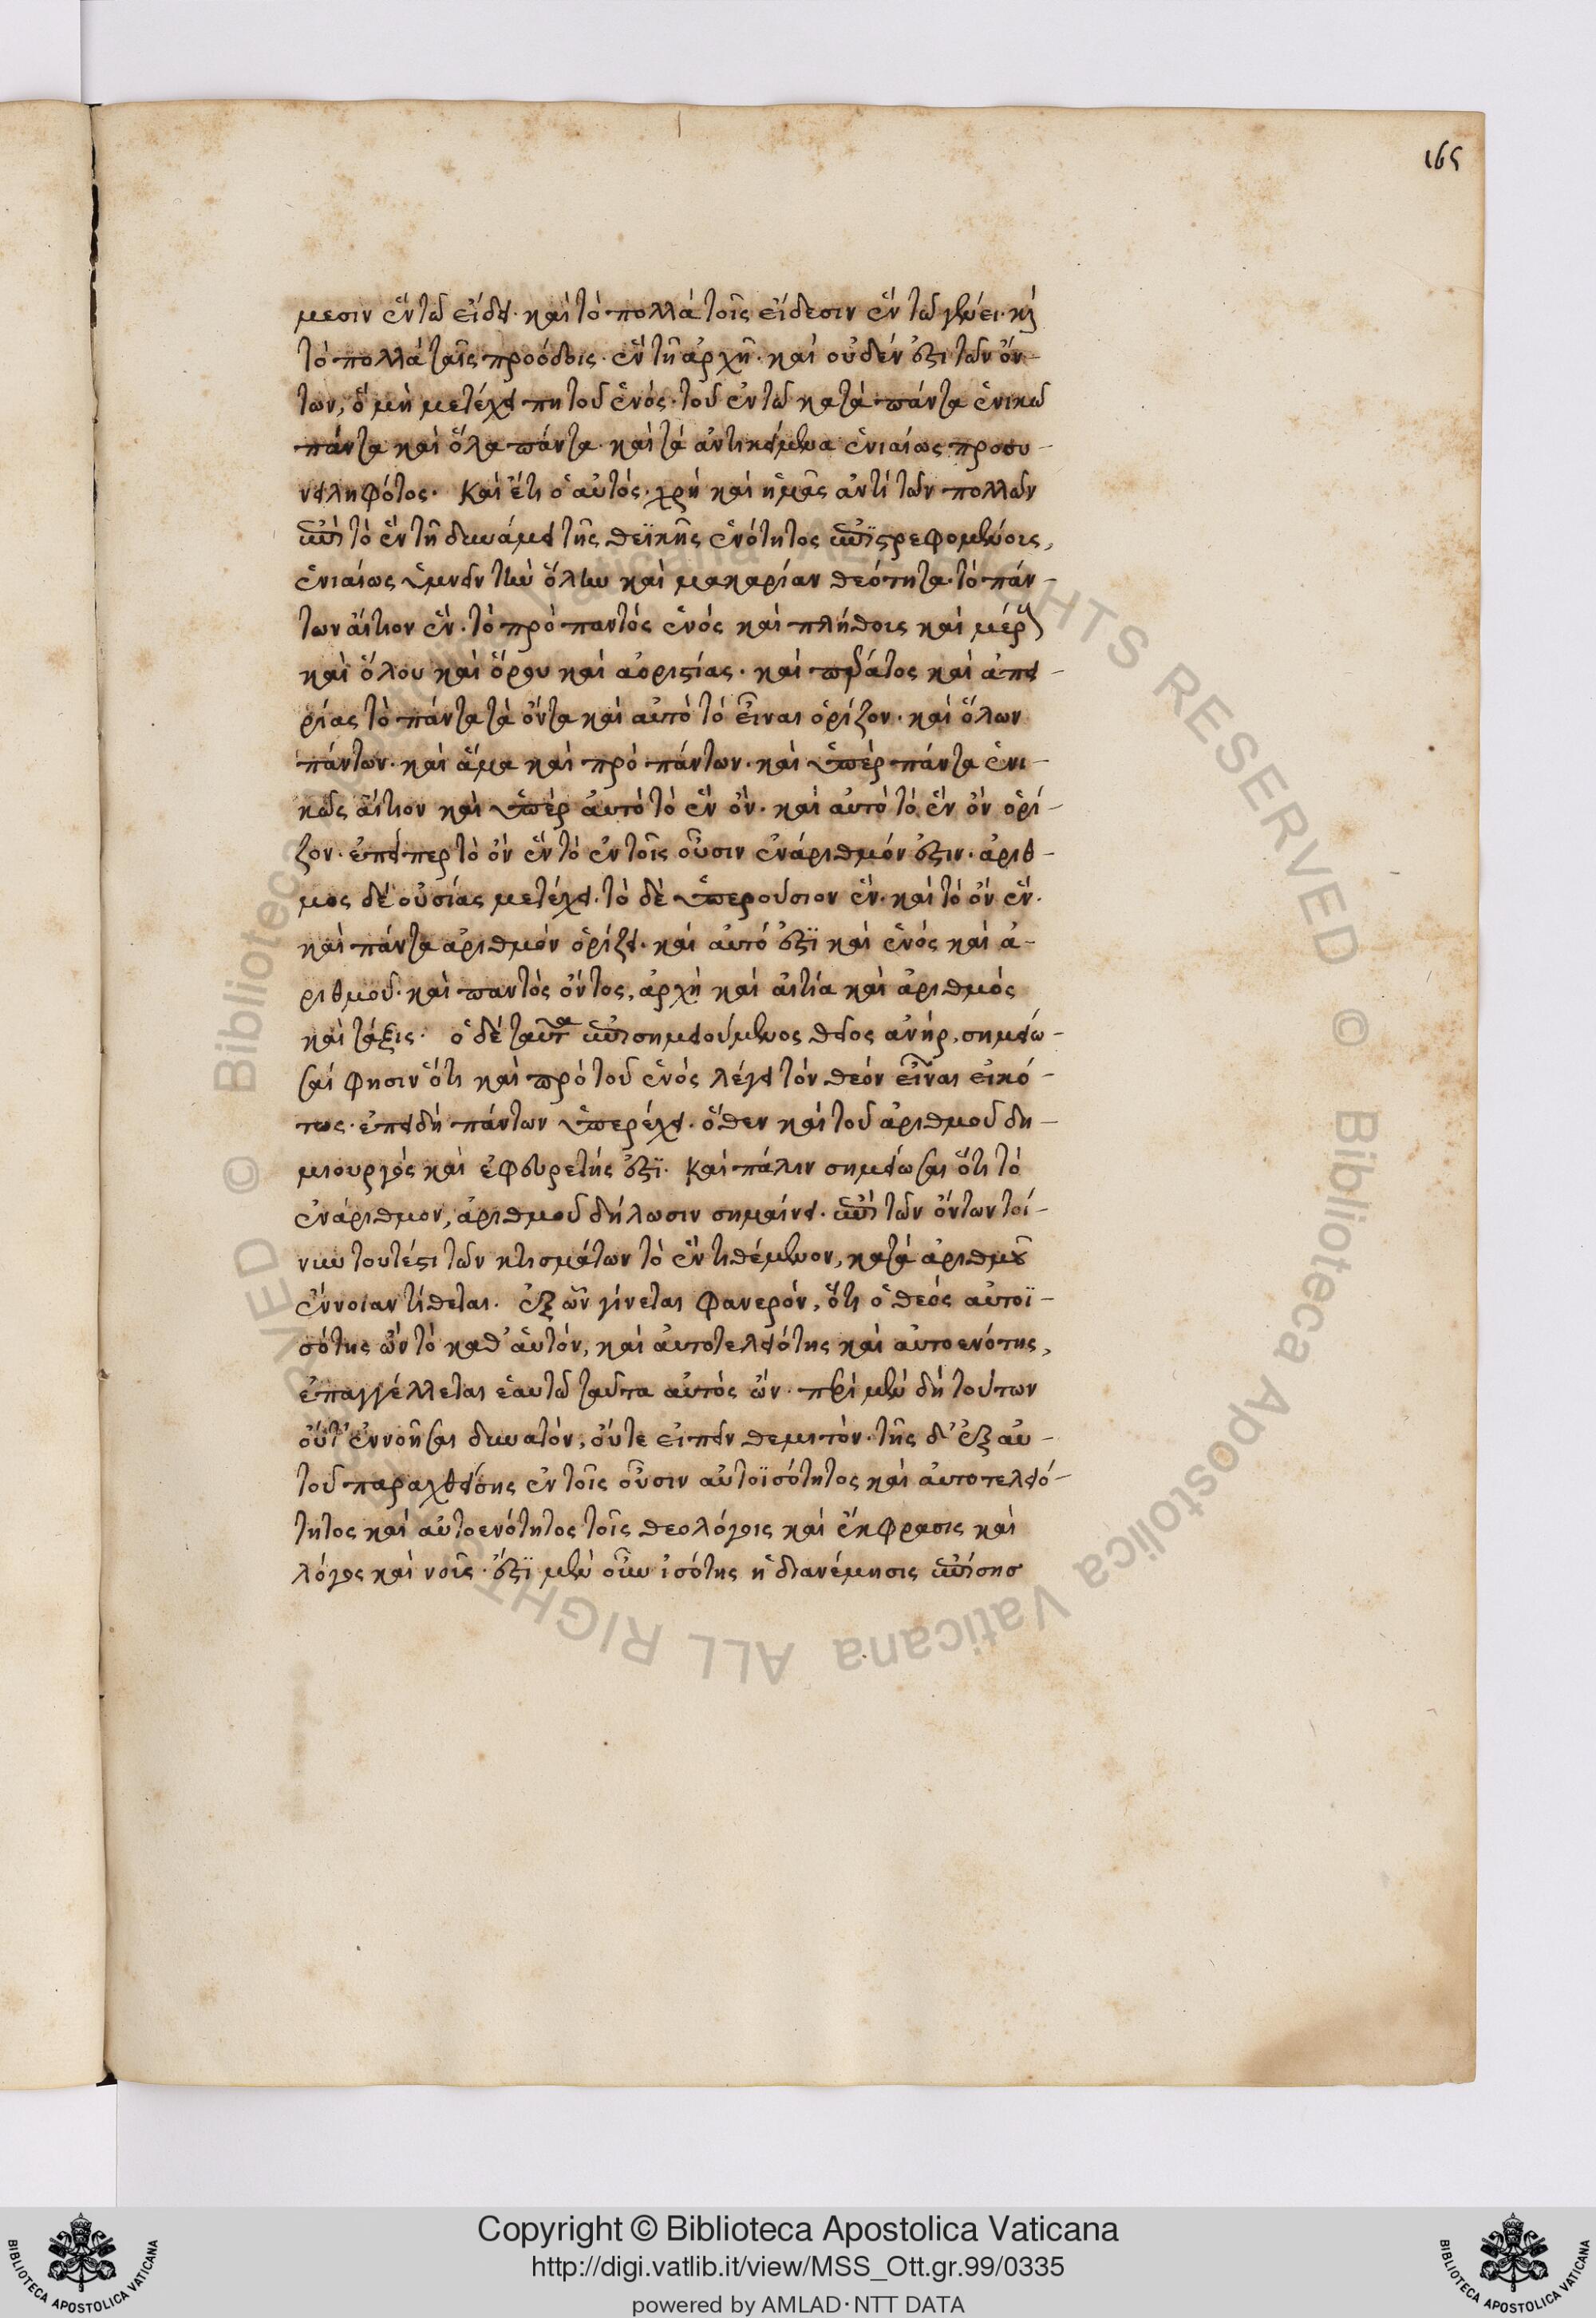 165
μεσιν ἓν τῶ εἴδει· καὶ τὸ πολλὰ τοῖς εἴδεσιν ἓν τῶ γένει· καὶ
τὸ πολλὰ ταῖς προόδοις· ἓν τῆ ἀρχῆ· καὶ οὐδέν ἐστι τῶν ὄν-
των, ὃ μὴ μετέχει πη τοῦ ἑνός· τοῦ ἐν τῶ κατὰ πάντα ἑνικῶ
πάντα καὶ ὅλα πάντα· καὶ τὰ ἀντικείμενα ἑνιαίως προσυ-
νειληφότος· Καὶ ἔτι ὁ αὐτός· χρὴ καὶ ἡμᾶς ἀντὶ τῶν πολλῶν
ἐπὶ τὸ ἓν τῆ δυνάμει τῆς θεϊκῆς ἑνότητος ἐπιστρεφομένοις,
ἑνιαίως ὑμνεῖν τὴν ὅλην καὶ μακαρίαν θεότητα· τὸ πάν-
των αἴτιον ἕν· τὸ πρὸ παντὸς ἑνὸς καὶ πλήθοις καὶ μέρους
καὶ ὅλου καὶ ὅρου καὶ ἀοριστίας· καὶ πέρατος καὶ ἀπει-
ρίας τὸ πάντα τὰ ὄντα καὶ αὐτὸ τὸ εἶναι ὁρίζον· καὶ ὅλων
πάντων· καὶ ἅμα καὶ πρὸ πάντων· καὶ ὑπὲρ πάντα ἑνι-
κῶς αἴτιον καὶ ὑπὲρ αὐτὸ τὸ ἓν ὄν· καὶ αὐτὸ τὸ ἓν ὂν ὁρί-
ζον· ἐπείπερ τὸ ὂν ἓν τὸ ἐν τοῖς οὖσιν ἐνάριθμόν ἐστιν· ἀριθ-
μος δὲ οὐσίας μετέχει· τὸ δὲ ὑπερούσιον ἕν· καὶ τὸ ὂν ἕν·
καὶ πάντα ἀριθμὸν ὁρίζει· καὶ αὐτό ἐστϊ καὶ ἑνὸς καὶ ἀ-
ριθμοῦ· καὶ παντὸς ὄντος, ἀρχὴ καὶ αἰτία καὶ ἀριθμὸς
καὶ τάξις· ὁ δὲ ταῦτα ἐπισημειούμενος θεῖος ἀνήρ, σημείω-
σαί φησιν ὅτι καὶ πρὸ τοῦ ἑνὸς λέγει τὸν θεὸν εἶναι εἰκό-
τως· ἐπειδὴ πάντων ὑπερέχει· ὅθεν καὶ τοῦ ἀριθμοῦ δη-
μιουργὸς καὶ ἐφευρετής ἐστϊ· Καὶ πάλιν σημείωσαι ὅτι τὸ
ἐνάριθμον, ἀριθμοῦ δήλωσιν σημαίνει· ἐπὶ τῶν ὄντων τοί-
νυν τουτέστι τῶν κτισμάτων τὸ ἓν τιθέμενον, κατὰ ἀριθμοῦ
ἔννοιαν τίθεται· ἐξ ὧν γίνεται φανερόν, ὅτι ὁ θεὸς αὐτοϊ-
σότης ὢν τὸ καθ' αὑτόν, καὶ αὐτοτελειότης καὶ αὐτοενότης,
ἐπαγγέλλεται ἑαυτῶ ταῦτα αὐτὸς ὤν· περὶ μὲν δὴ τούτων
οὔτ' ἐννοῆσαι δυνατόν, οὔτε εἰπεῖν θεμιτόν· τῆς δ' ἐξ αὐ-
τοῦ παραχθείσης ἐν τοῖς οὖσιν αὐτοϊσότητος καὶ αὐτοτελειό-
τητος καὶ αὐτοενότητος τοῖς θεολόγοις καὶ ἔκφρασις καὶ
λόγος καὶ νοῦς· ἐστϊ μὲν οὖν ἰσότης ἡ διανέμησις ἐπίσης
Copyright © Biblioteca Apostolica Vaticana
http://digi.vatlib.it/view/MSS_Ott.gr.99/0335
powered by AMLAD·NTT DATA
BIBLIOTECA APOSTOLICA VATICANA
BIBLIOTECA APOSTOLICA VATICANA
© Biblioteca Apostolica Vaticana ALL RIGHTS RESERVED © Biblioteca Apostolica Vaticana ALL RIGHTS RESERVED